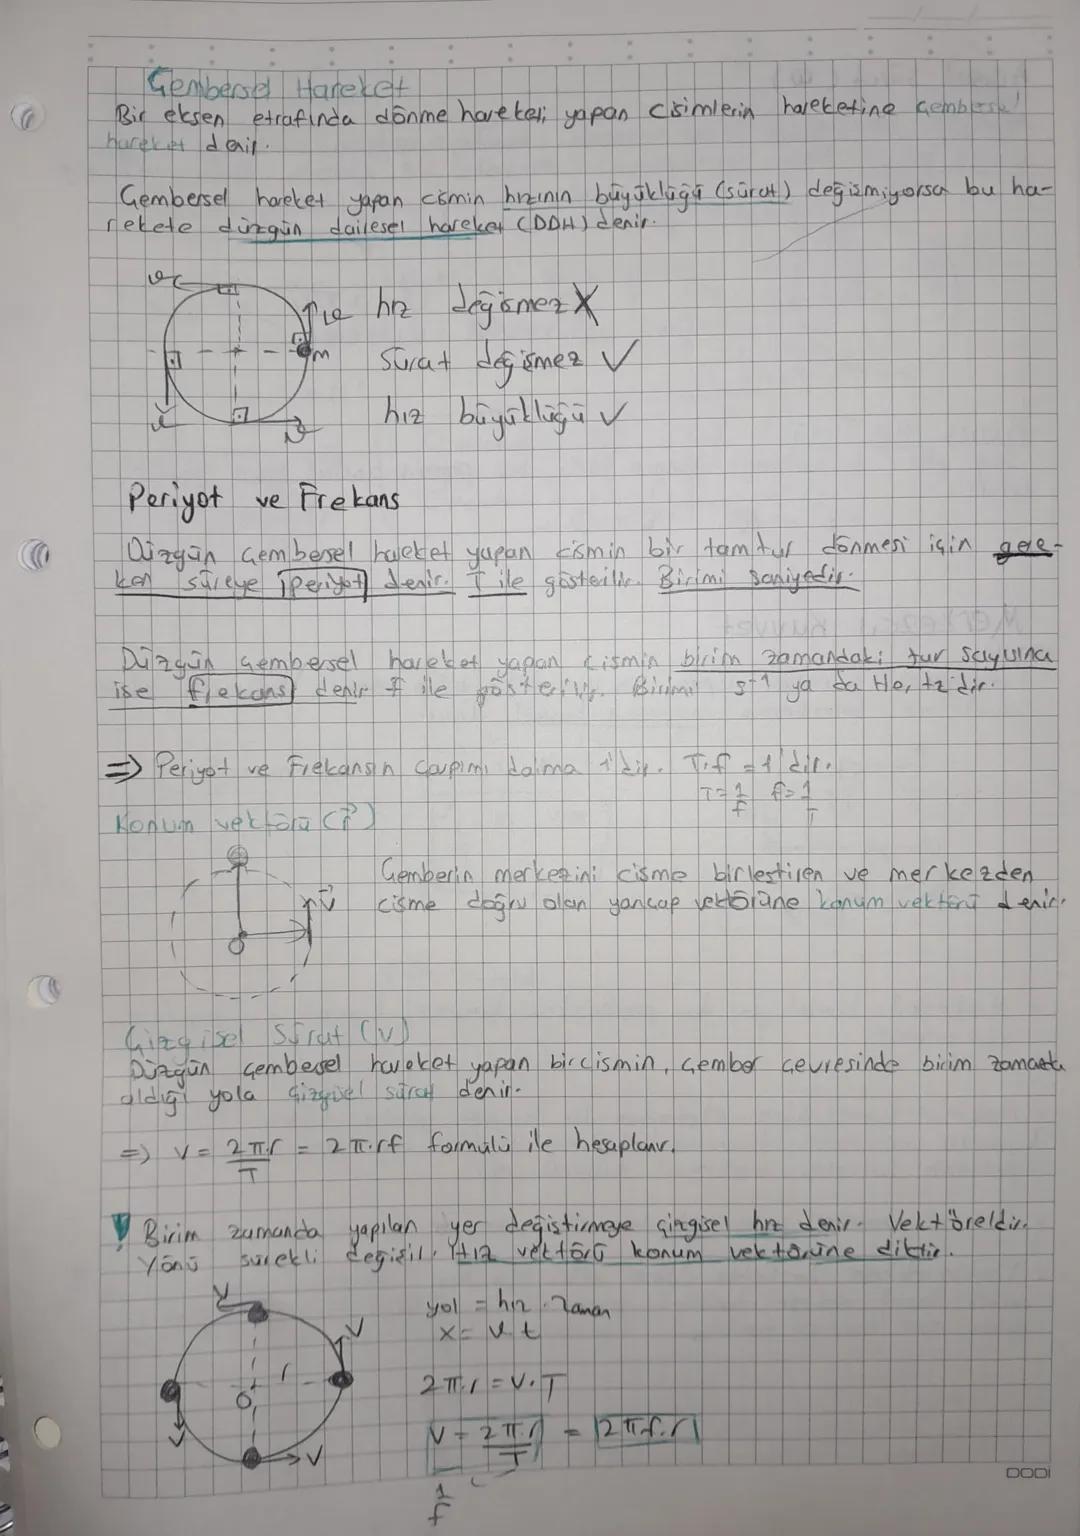 Çembersel Hareket
Bir eksen etrafında dönme hareketi yapan cisimlerin hareketine çembersel
hareket denir.
Çembersel hareket yapan cismin hızının büyüklüğü (sürat) değişmiyorsa bu ha-
rekete düzgün dairesel hareket (DDH) denir.
hız değişmez X
m
sürat değişmez ✓
hız büyüklüğü ✓
Periyot ve Frekans
Düzgün çembersel hareket yapan cismin bir tam tur dönmesi için gere-
ken süreye periyot denir. T ile gösterilir. Birimi saniyedir.
Düzgün çembersel hareket yapan cismin birim zamandaki tur sayısına
ise frekans denir f ile gösterilir. Birimi s⁻¹ ya da Hertz'dir.
⇒ Periyot ve Frekansın çarpımı daima 1'dir. T.f = 1'dir.
T = 1/f f = 1/T
Konum vektörü (r⃗)
Çemberin merkezini cisme birleştiren ve merkezden
v⃗ cisme doğru olan yarıçap vektörüne konum vektörü denir.
Çizgisel Sürat (v)
Düzgün çembersel hareket yapan bir cismin, çember çevresinde birim zamanda
aldığı yola çizgisel sürat denir.
⇒ v = 2π.r/T = 2π.rf formülü ile hesaplanır.
! Birim zamanda yapılan yer değiştirmeye çizgisel hız denir. Vektöreldir.
Yönü sürekli değişir. Hız vektörü konum vektörüne diktir.
V
yol = hız . Zaman
V
x = v.t
r
2π.r = V.T
O
V V
V = 2π.r/T = 2π.f.r
1/f
DODI